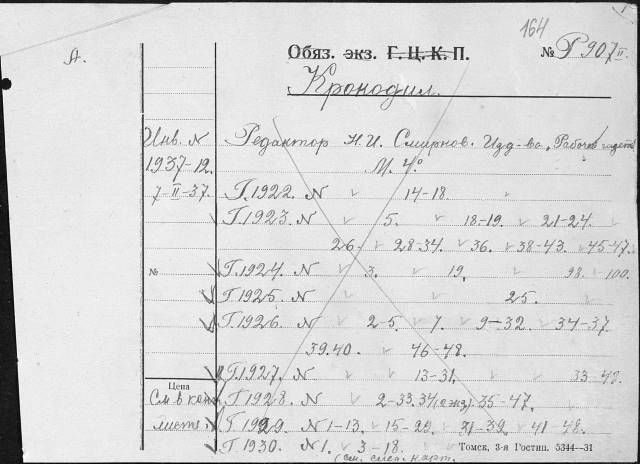 164
А.
Обяз. экз. Г. Ц. К. П.
№ Р907 II
Крокодил.
Инв. N
1937-12.
7-II-37.
Редактор Н.И. Смирнов. Изд-во „Рабочая газета
М. 4°
Г.1922. N 14-18.
Г.1923. N 5. 18-19. 21-24.
26. 28-34. 36. 38-43. 45-47.
№ Г.1924. N 3. 19. 98. 100.
Г.1925. N 25.
Г.1926. N 2-5. 7. 9-32. 34-37.
39.40. 46-48.
Г.1927. N 13-31. 33-48.
Цена
См. в кон
листе.
Г.1928. N 2-33.34 (2 экз) 35-47.
Г.1929. N 1-13. 15-22. 31-39. 41-48.
Г.1930. N 1. 3-18.
(см. след. карт.
Томск, 3-я Гостип. 5344—31